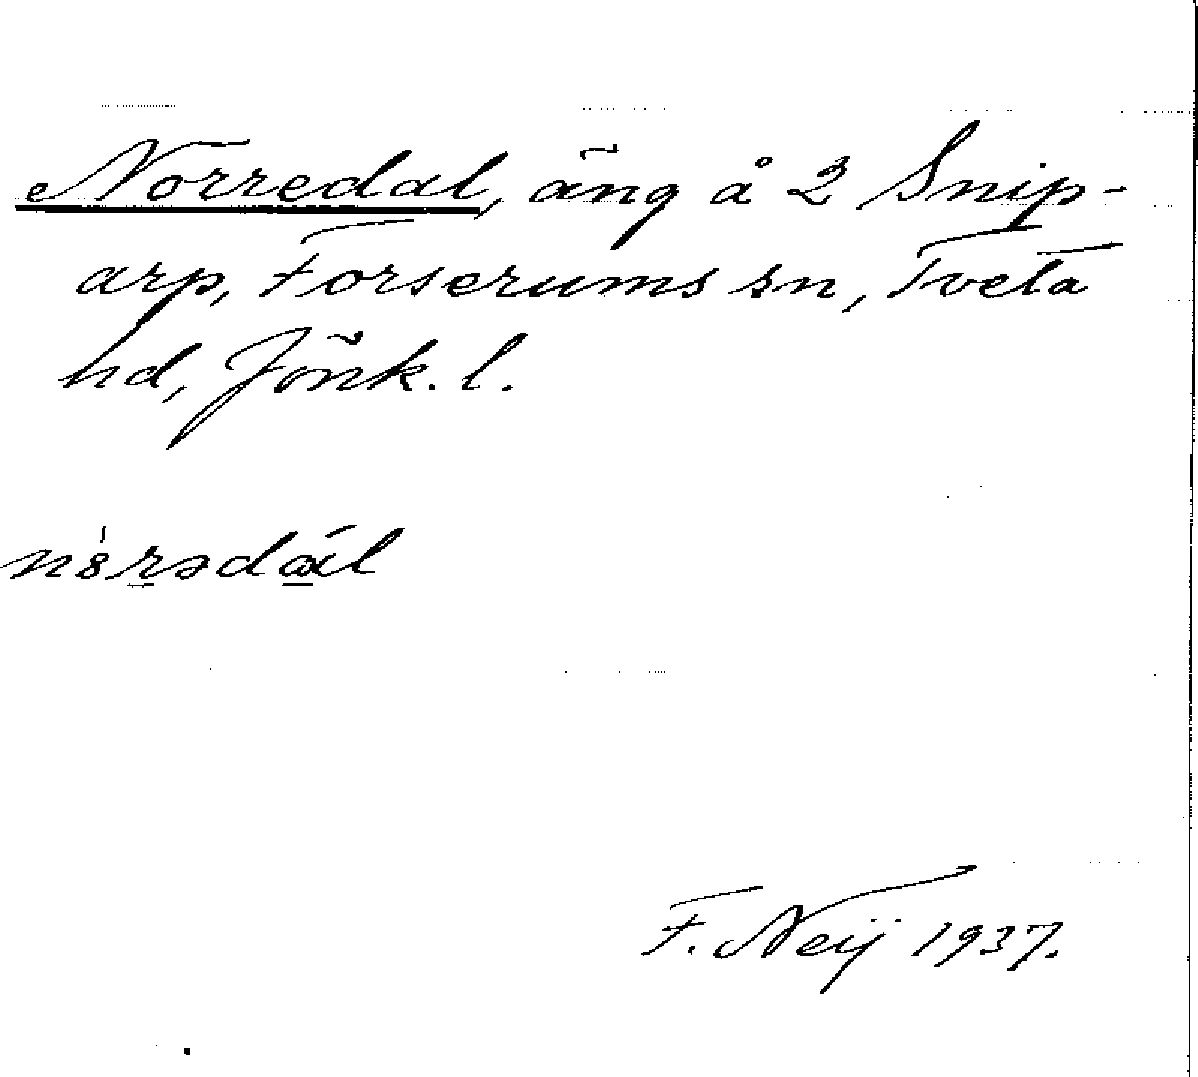 Norredal, äng å 2 Snip-
arp, Forserums sn, Tveta
hd, Jönk. l.
n8̍rədál
F. Neij 1937.